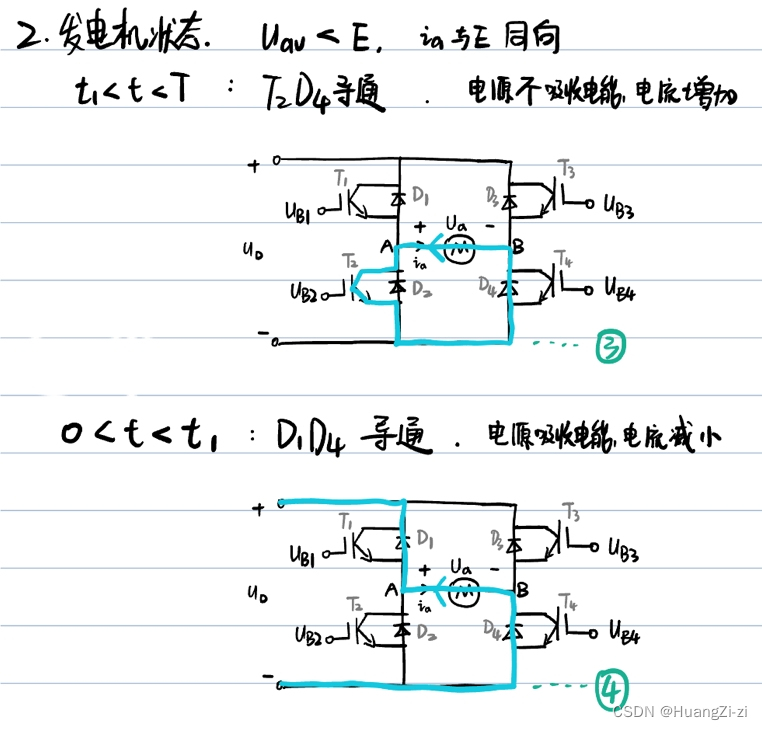 2. 发电机状态. Uav < E, ia与E 同向
t₁<t<T : T₂D₄导通 . 电源不吸收电能, 电流增加
+ T₁ D₁ D₃ T₃
UB1 UB3
+ Ua -
U₀ A M B
T₂ ia T₄
UB2 D₂ D₄ UB4
- ③
0<t<t₁ : D₁D₄ 导通 . 电源吸收电能, 电流减小
+ T₁ D₁ D₃ T₃
UB1 UB3
+ Ua -
U₀ A M B
T₂ ia T₄
UB2 D₂ D₄ UB4
- ④
CSDN @HuangZi-zi